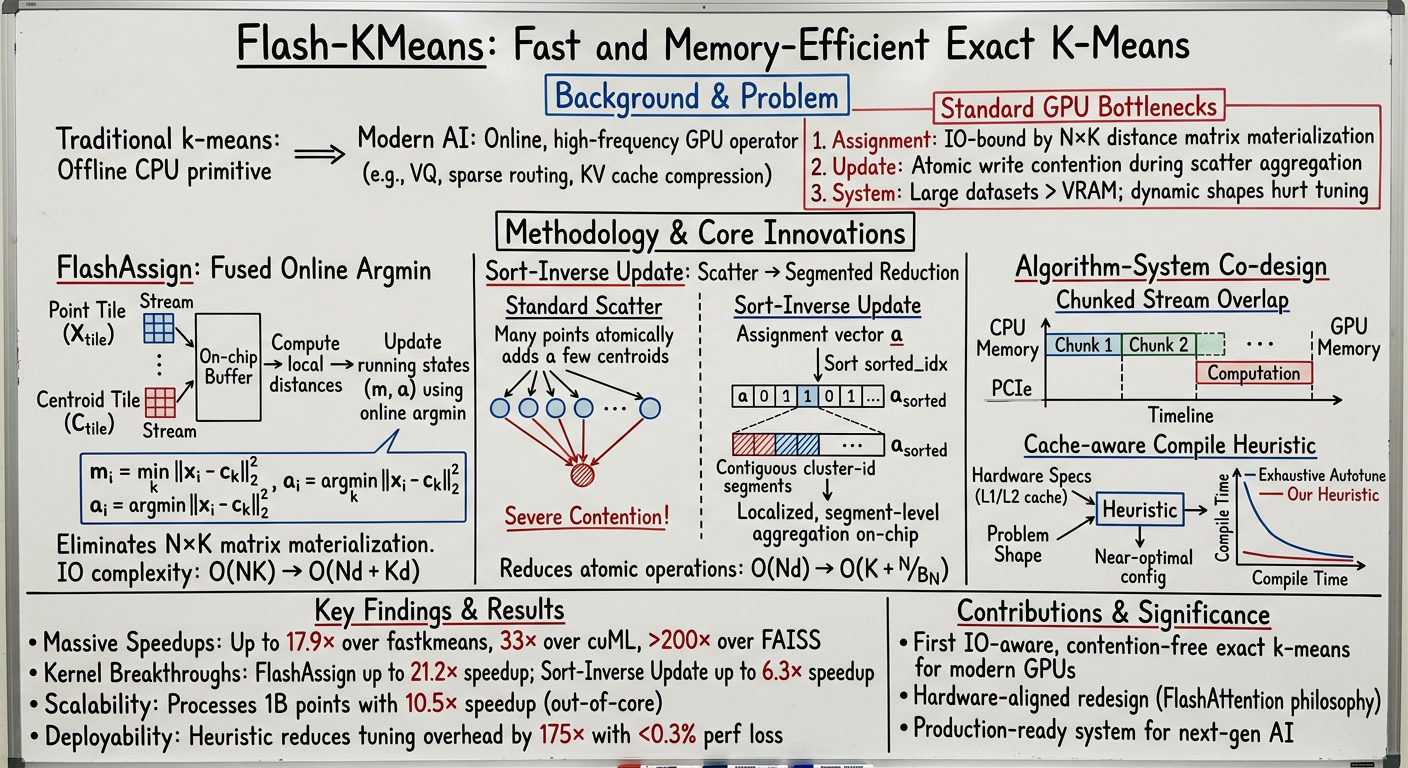 Flash-KMeans: Fast and Memory-Efficient Exact K-Means
Background & Problem
Traditional k-means:
Offline CPU primitive
Modern AI: Online, high-frequency GPU operator
(e.g., VQ, sparse routing, KV cache compression)
Standard GPU Bottlenecks
1. Assignment: IO-bound by N×K distance matrix materialization
2. Update: Atomic write contention during scatter aggregation
3. System: Large datasets > VRAM; dynamic shapes hurt tuning
Methodology & Core Innovations
FlashAssign: Fused Online Argmin
Point Tile
(X_tile)
Stream
Centroid Tile
(C_tile)
Stream
On-chip
Buffer
Compute
local
distances
Update
running states
(m, a) using
online argmin
m_i = min_k ||x_i - c_k||_2^2, a_i = argmin_k ||x_i - c_k||_2^2
a_i = argmin ||x_i - c_k||_2^2
Eliminates N×K matrix materialization.
IO complexity: O(NK) → O(Nd + Kd)
Sort-Inverse Update: Scatter → Segmented Reduction
Standard Scatter
Many points atomically
adds a few centroids
...
Severe Contention!
Sort-Inverse Update
Assignment vector a
Sort sorted_idx
a 0 1 1 0 1 ... a_sorted
... a_sorted
Contiguous cluster-id
segments
Localized, segment-level
aggregation on-chip
Reduces atomic operations: O(Nd) → O(K + N/B_N)
Algorithm-System Co-design
Chunked Stream Overlap
CPU
Memory
PCIe
Chunk 1
Chunk 2
...
Computation
GPU
Memory
Timeline
Cache-aware Compile Heuristic
Hardware Specs
(L1/L2 cache)
Problem
Shape
Heuristic
Near-optimal
config
Compile Time
Exhaustive Autotune
Our Heuristic
Compile Time
Key Findings & Results
• Massive Speedups: Up to 17.9× over fastkmeans, 33× over cuML, >200× over FAISS
• Kernel Breakthroughs: FlashAssign up to 21.2× speedup; Sort-Inverse Update up to 6.3× speedup
• Scalability: Processes 1B points with 10.5× speedup (out-of-core)
• Deployability: Heuristic reduces tuning overhead by 175× with <0.3% perf loss
Contributions & Significance
• First IO-aware, contention-free exact k-means
for modern GPUs
• Hardware-aligned redesign (FlashAttention philosophy)
• Production-ready system for next-gen AI